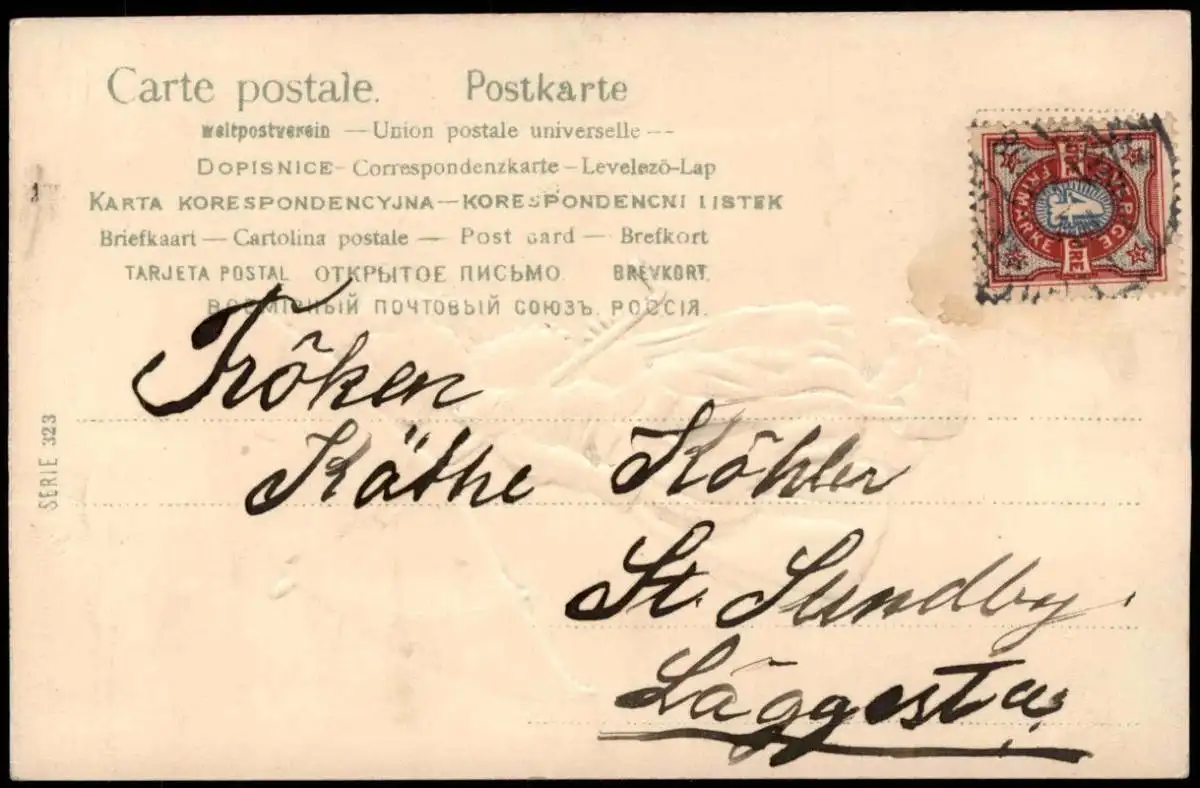 Carte postale. Postkarte
Weltpostverein — Union postale universelle —
DOPISNICE - Correspondenzkarte - Levelező-Lap
KARTA KORESPONDENCYJNA — KORESPONDENCNI LISTEK
Briefkaart — Cartolina postale — Post card — Brefkort
TARJETA POSTAL ОТКРЫТОЕ ПИСЬМО. BREVKORT.
ВСЕМІРНЫЙ ПОЧТОВЫЙ СОЮЗЪ. РОССІЯ.
SVERIGE
FRIMÄRKE
ÖRE
Fröken
Käthe Köhler
St. Sundby
Läggesta
SERIE 323